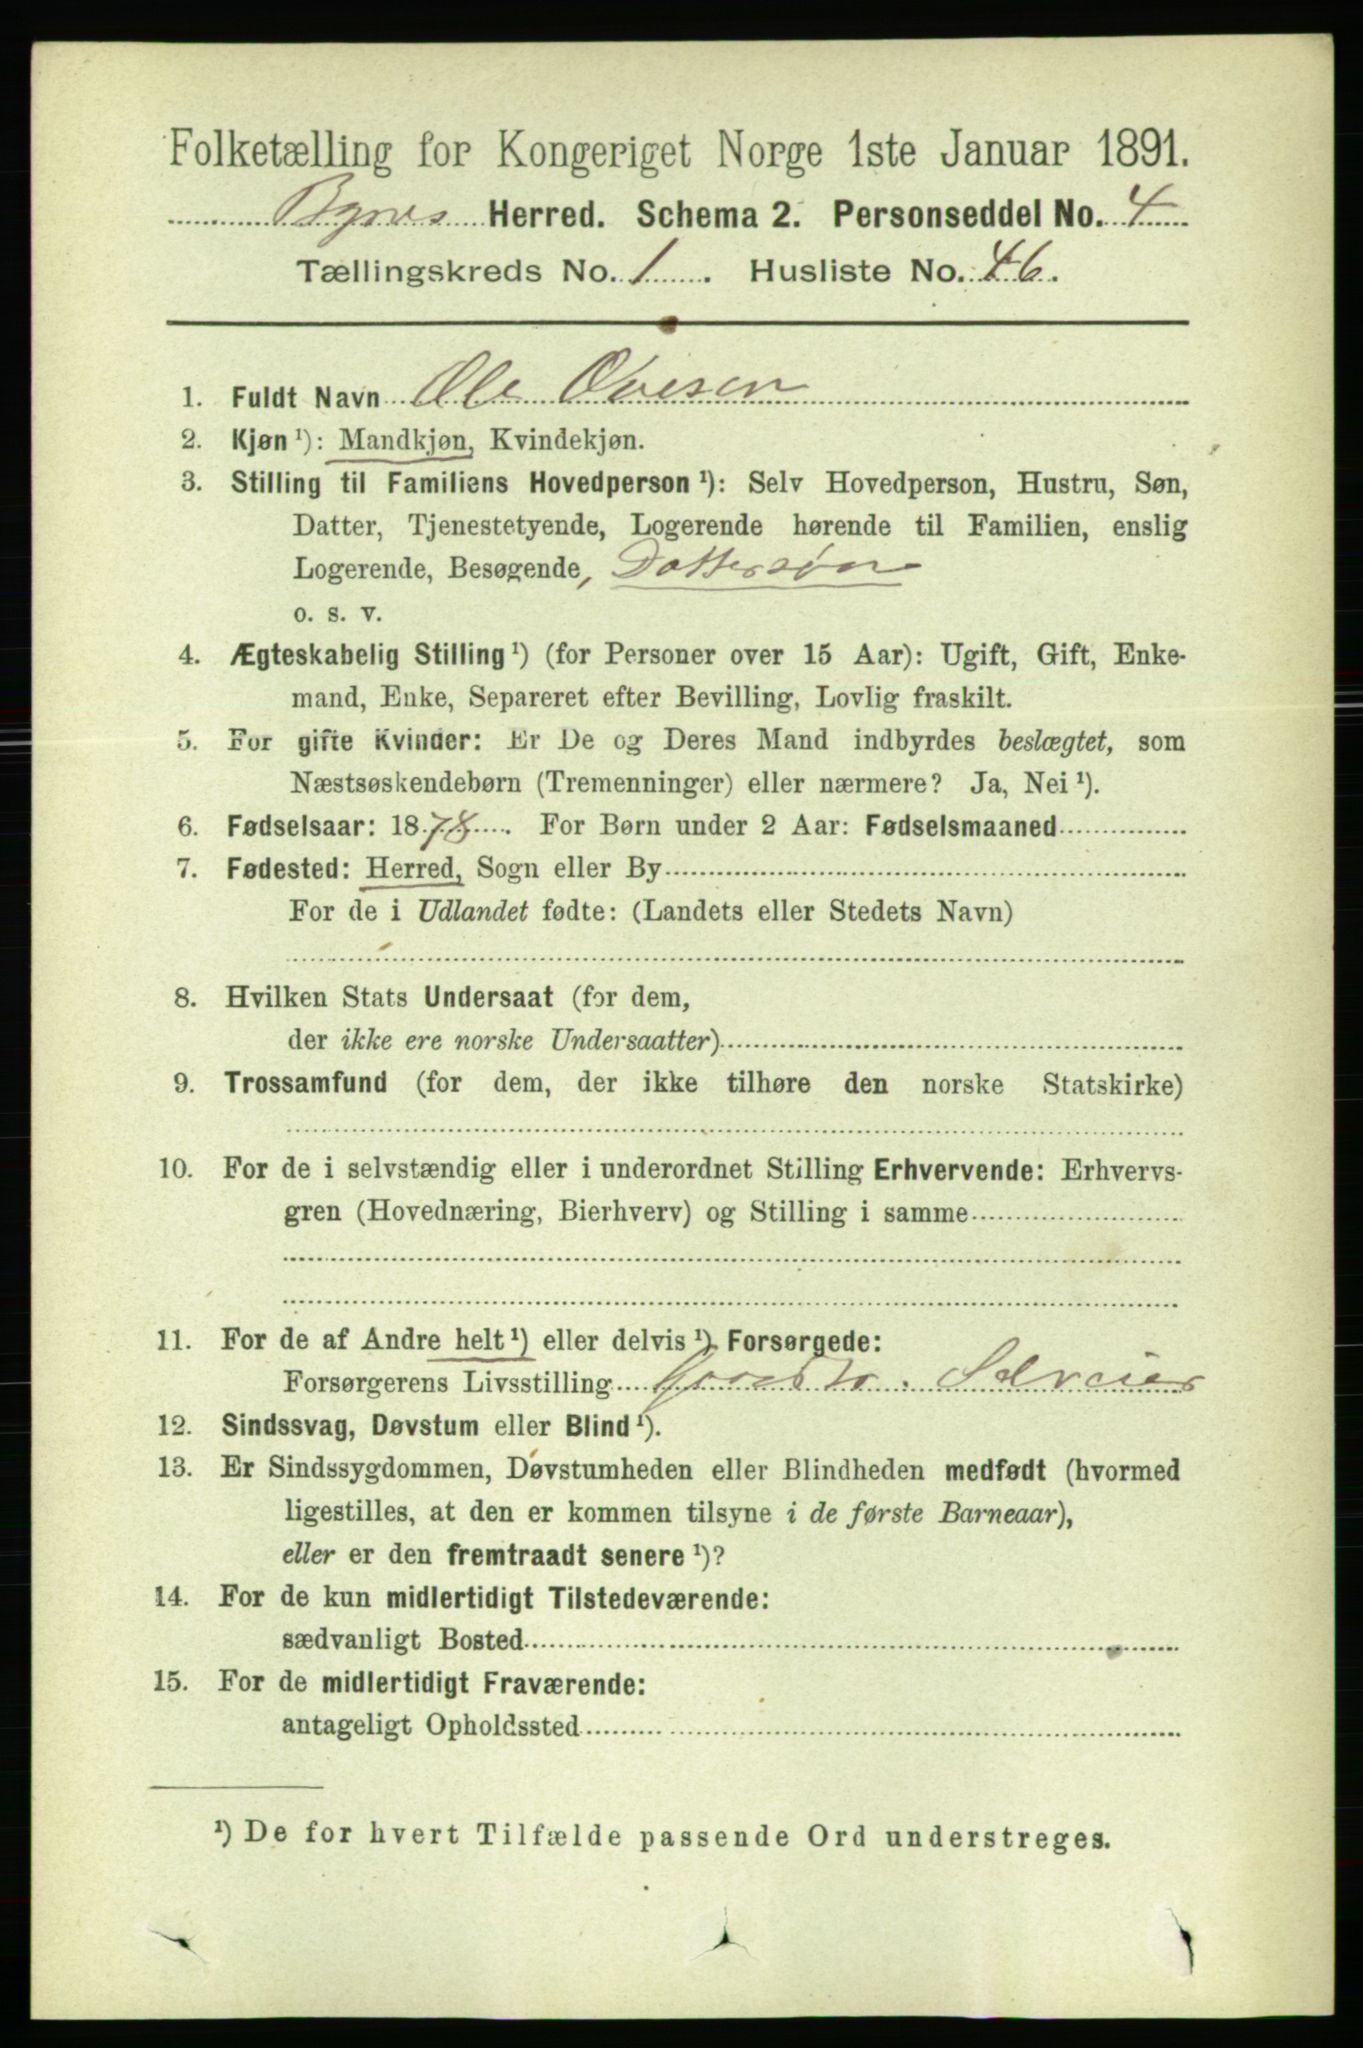 Folketælling for Kongeriget Norge 1ste Januar 1891.
Bynes Herred. Schema 2. Personseddel No. 4
Tællingskreds No. 1. Husliste No. 46.
1. Fuldt Navn Ole Ovesen
2. Kjøn ¹): Mandkjøn, Kvindekjøn.
3. Stilling til Familiens Hovedperson ¹): Selv Hovedperson, Hustru, Søn,
Datter, Tjenestetyende, Logerende hørende til Familien, enslig
Logerende, Besøgende, Dattersøn
o. s. v.
4. Ægteskabelig Stilling ¹) (for Personer over 15 Aar): Ugift, Gift, Enke-
mand, Enke, Separeret efter Bevilling, Lovlig fraskilt.
5. For gifte Kvinder: Er De og Deres Mand indbyrdes beslægtet, som
Næstsøskendebørn (Tremenninger) eller nærmere? Ja, Nei ¹).
6. Fødselsaar: 1878. For Børn under 2 Aar: Fødselsmaaned
7. Fødested: Herred, Sogn eller By
For de i Udlandet fødte: (Landets eller Stedets Navn)
8. Hvilken Stats Undersaat (for dem,
der ikke ere norske Undersaatter)
9. Trossamfund (for dem, der ikke tilhøre den norske Statskirke)
10. For de i selvstændig eller i underordnet Stilling Erhvervende: Erhvervs-
gren (Hovednæring, Bierhverv) og Stilling i samme
11. For de af Andre helt ¹) eller delvis ¹) Forsørgede:
Forsørgerens Livsstilling Gaardbr. Selveier
12. Sindssvag, Døvstum eller Blind ¹).
13. Er Sindssygdommen, Døvstumheden eller Blindheden medfødt (hvormed
ligestilles, at den er kommen tilsyne i de første Barneaar),
eller er den fremtraadt senere ¹)?
14. For de kun midlertidigt Tilstedeværende:
sædvanligt Bosted
15. For de midlertidigt Fraværende:
antageligt Opholdssted
¹) De for hvert Tilfælde passende Ord understreges.